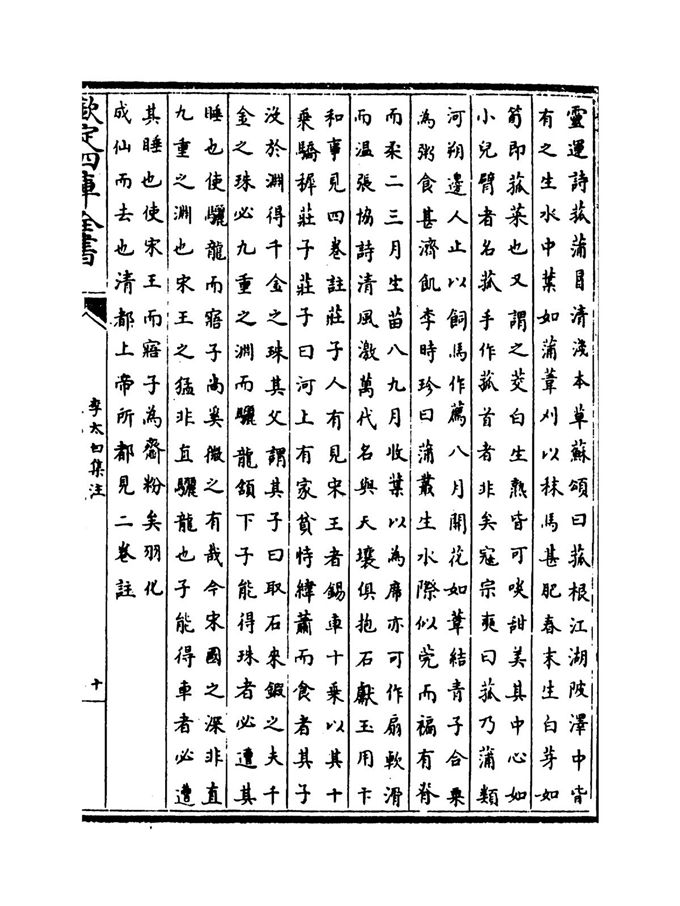 靈運詩菰蒲冒清淺本草蘇頌曰菰根江湖陂澤中皆
有之生水中葉如蒲葦刈以秣馬甚肥春末生白芽如
筍即菰菜也又謂之茭白生熟皆可啖甜美其中心如
小兒臂者名菰手作菰首者非矣寇宗奭曰菰乃蒲類
河朔邊人止以飼馬作薦八月開花如葦結青子合粟
為粥食甚濟飢李時珍曰蒲叢生水際似莞而褊有脊
而柔二三月生苗八九月收葉以為席亦可作扇軟滑
而温張協詩清風激萬代名與天壤俱抱石獻玉用卞
和事見四卷註莊子人有見宋王者錫車十乗以其十
乗驕穉莊子莊子曰河上有家貧恃緯蕭而食者其子
沒於淵得千金之珠其父謂其子曰取石來鍜之夫千
金之珠必九重之淵而驪龍頷下子能得珠者必遭其
睡也使驪龍而寤子尚奚微之有哉今宋國之深非直
九重之淵也宋王之猛非直驪龍也子能得車者必遭
其睡也使宋王而寤子為齏粉矣羽化
成仙而去也清都上帝所都見二卷註
欽定四庫全書
李太白集注
十